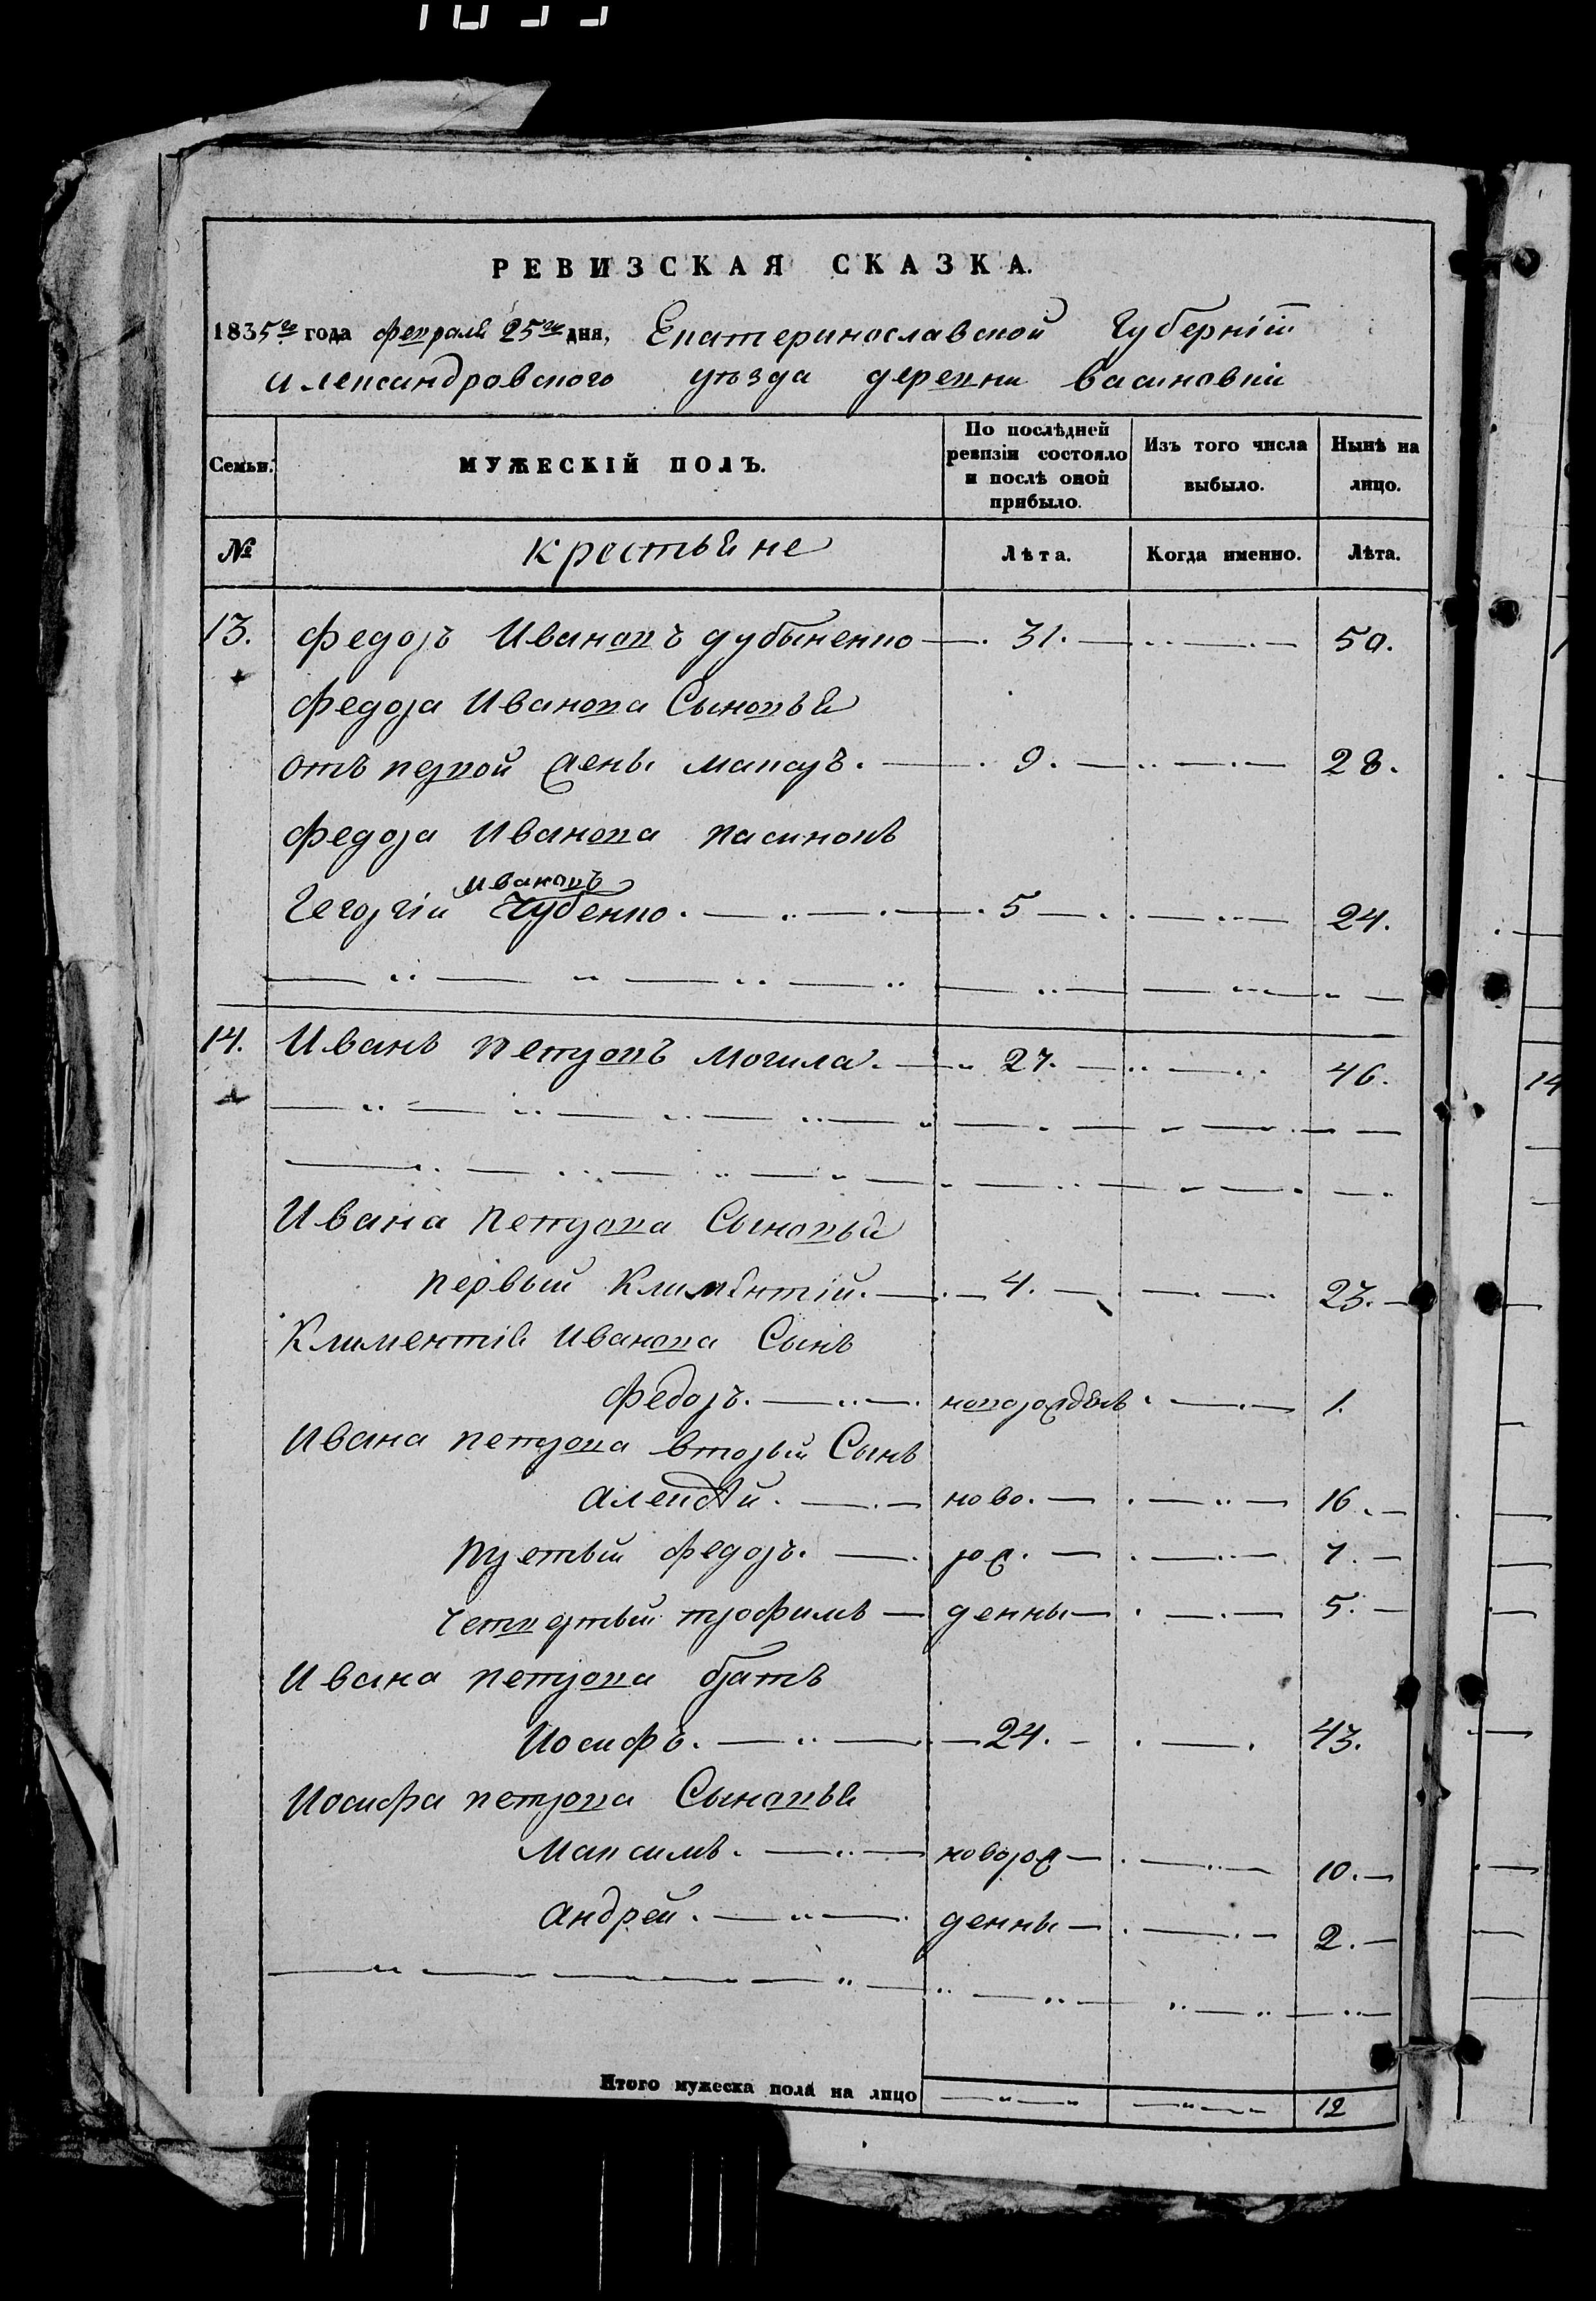 РЕВИЗСКАЯ СКАЗКА.
1835го года февраля 25го дня, Екатеринославской Губерніи
Александровского уѣзда деревни Васиновки
Семьи. МУЖЕСКІЙ ПОЛЪ. По послѣдней ревизіи состояло и послѣ оной прибыло. Изъ того числа выбыло. Нынѣ на лицо.
№ крестьяне Лѣта. Когда именно. Лѣта.
13. Федоръ Ивановъ дубыненко 31. 50.
Федора Иванова Сыновья
отъ первой жены макаръ. 9. 28.
Федора Иванова пасинокъ
Ивановъ
Георгій Чубенко. 5 24.
14. Иванъ петровъ могила. 27. 46.
Ивана петрова Сыновья
первый Климентій. 4. 23.
Климентія Иванова Сынъ
Федоръ. новорожденъ 1.
Ивана петрова вторый Сынъ
Алексѣй. ново. 16.
третый федоръ. рож. 7.
четвертый трофимъ денны 5.
Ивана петрова братъ
Иосифъ. 24. 43.
Иосифа петрова Сыновья
Максимъ. новорож 10.
Андрей. денны 2.
Итого мужеска пола на лицо 12